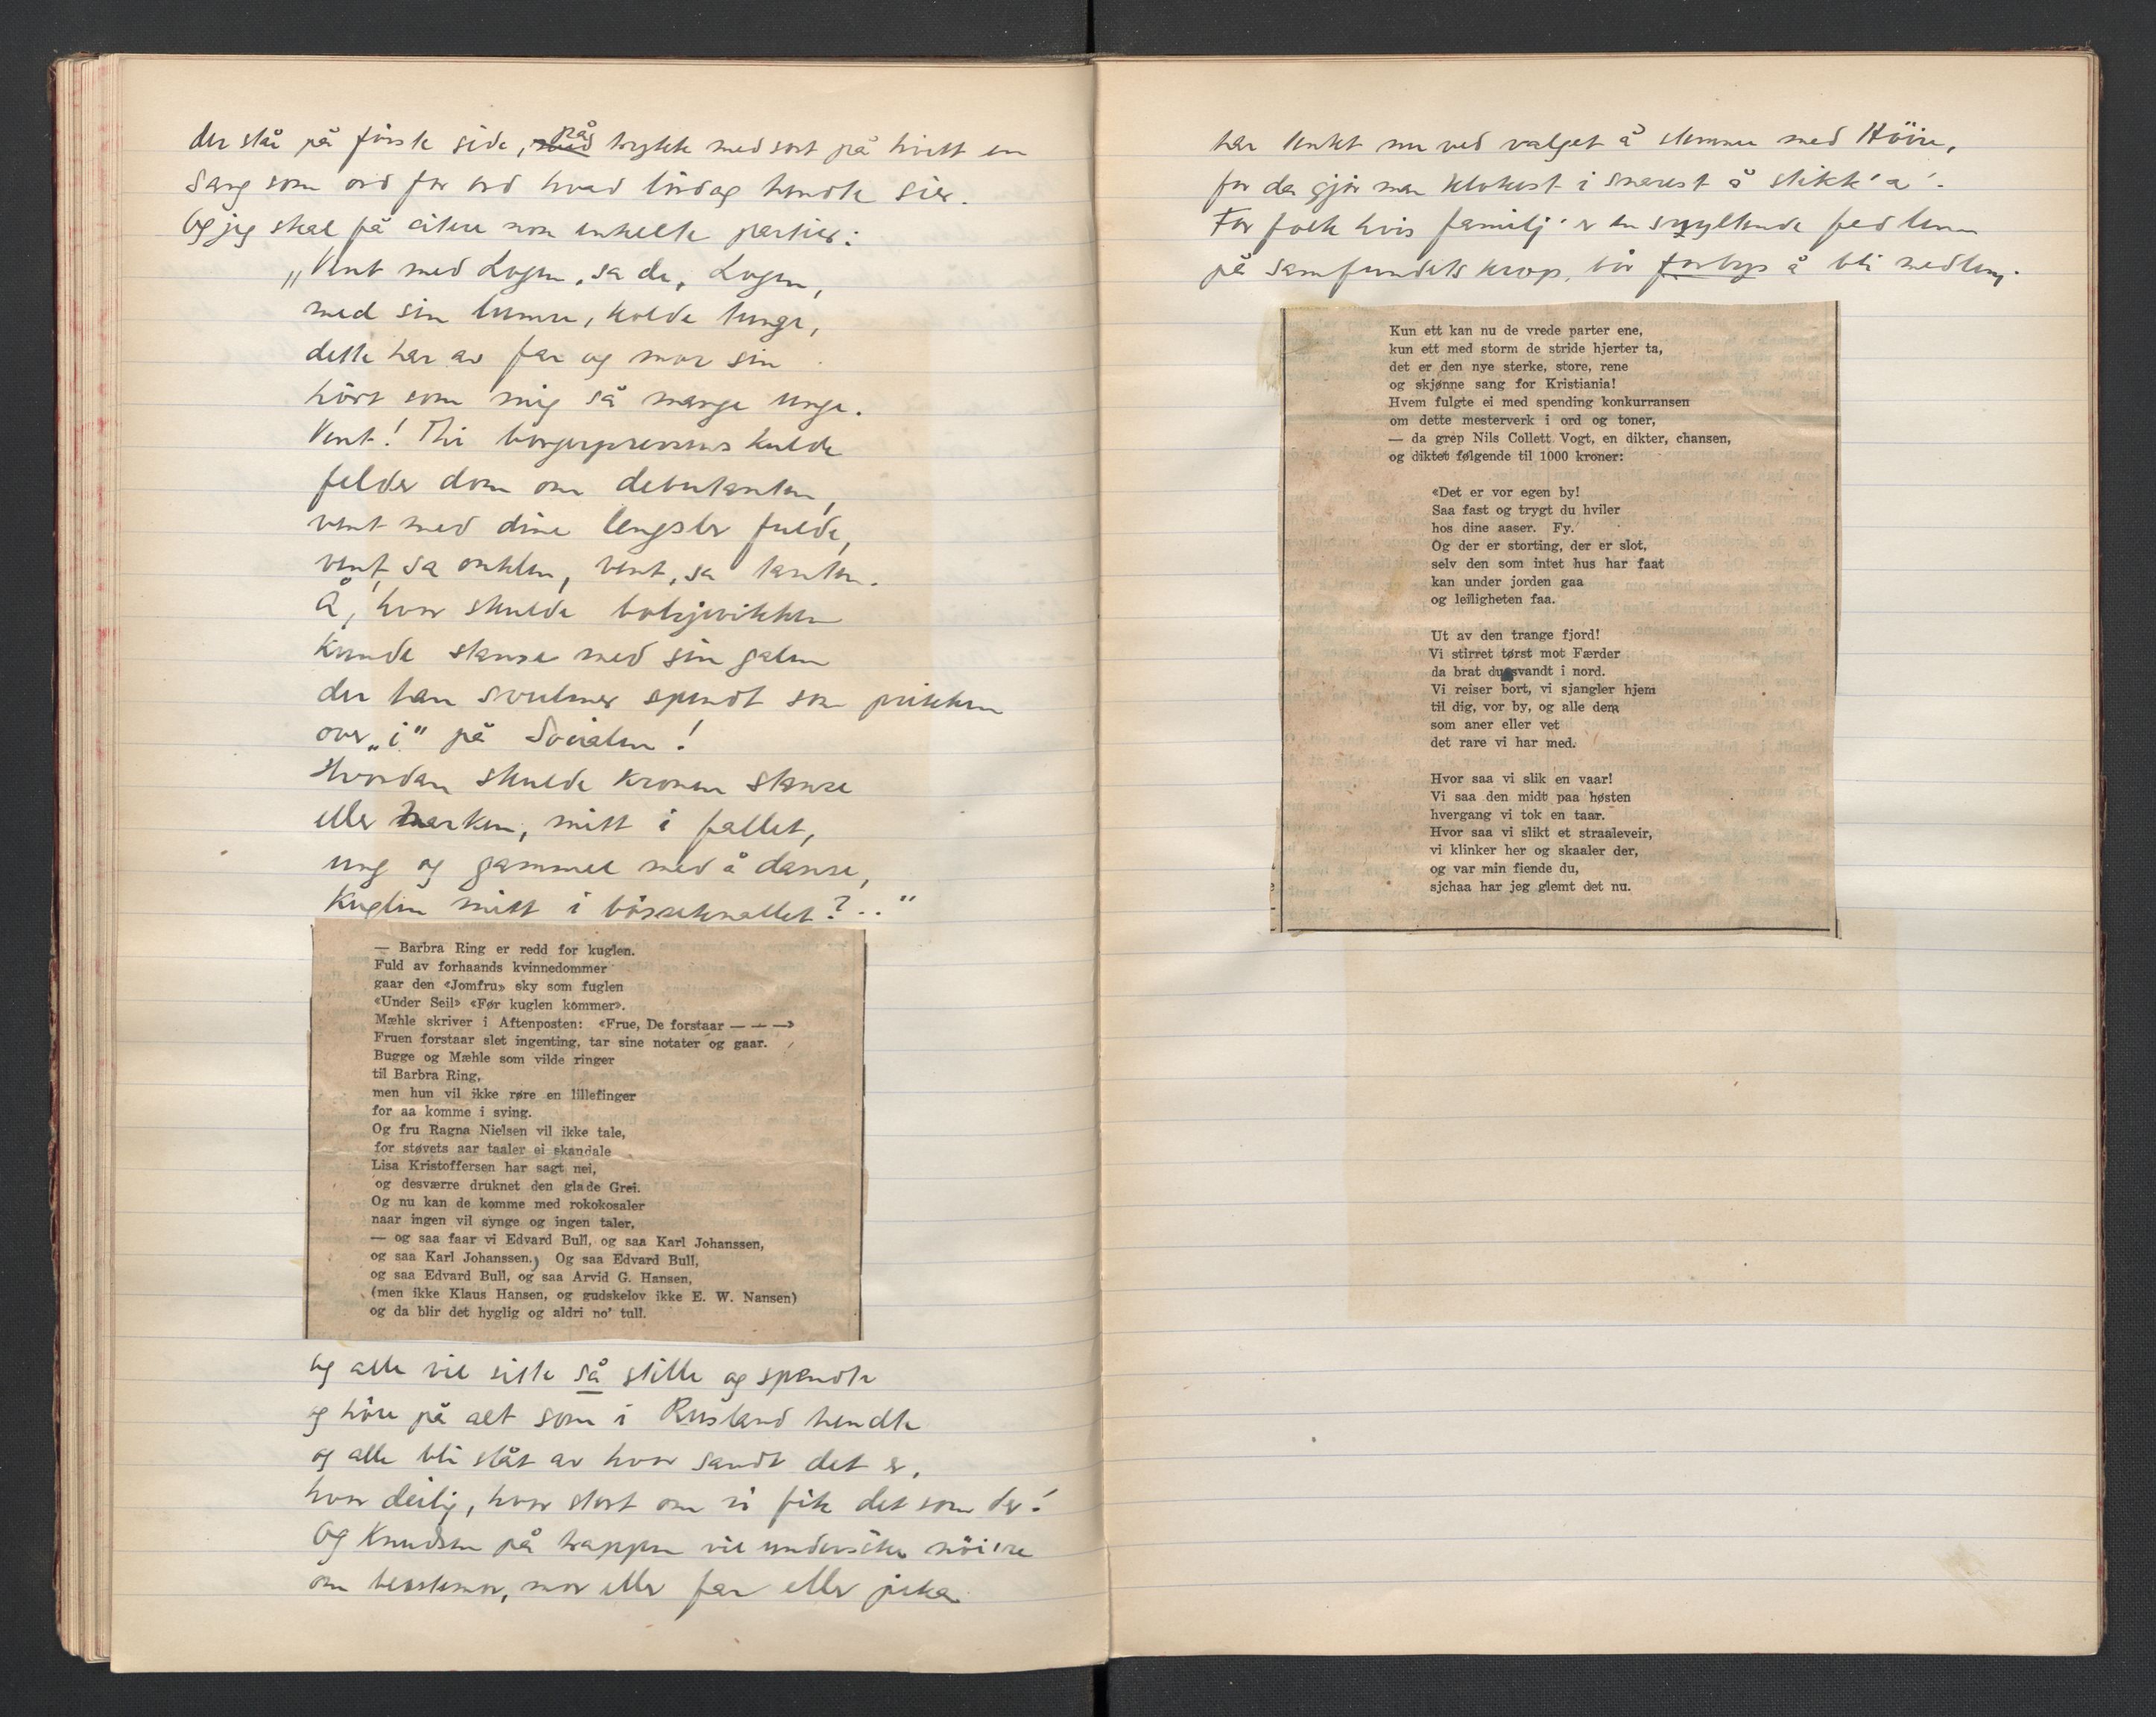 der står på første side, på trykte med sort på hvitt en
Sang som ord for ord hvad lördag hendte sier.
Og jeg skal få citere som enkelte partier:
„Vent med Logen, sa de, Logen,
med sin lumre, kolde tunge,
dette har av far og mor sin
hört som mig så mange unge.
Vent! Thi borgerpressens kulde
felder dom om debutanten,
vent med dine lengsler fulde,
vent, sa onklen, vent, sa tanten.
Å, hvor skulde bolsjevikken
kunde stanse med sin galen
der han svulmer spendt som prikken
over „i" på Socialen!
Hvordan skulde kronen stanse
eller marken, mitt i fallet,
ung og gammel med å danse,
Kuglen mitt i bösseknallet?.."
— Barbra Ring er redd for kuglen.
Fuld av forhaands kvinnedommer
gaar den «Jomfru» sky som fuglen
«Under Seil» «Før kuglen kommer».
Mæhle skriver i Aftenposten: «Frue, De forstaar — — —»
Fruen forstaar slet ingenting, tar sine notater og gaar.
Bugge og Mæhle som vilde ringer
til Barbra Ring,
men hun vil ikke røre en lillefinger
for aa komme i sving.
Og fru Ragna Nielsen vil ikke tale,
for støvets aar taaler ei skandale
Lisa Kristoffersen har sagt nei,
og desværre druknet den glade Grei.
Og nu kan de komme med rokokosaler
naar ingen vil synge og ingen taler,
— og saa faar vi Edvard Bull, og saa Karl Johanssen,
og saa Karl Johanssen.) Og saa Edvard Bull,
og saa Edvard Bull, og saa Arvid G. Hansen,
(men ikke Klaus Hansen, og gudskelov ikke E. W. Nansen)
og da blir det hyglig og aldri no' tull.
og alle vil sitte så stille og spendte
og höre på alt som i Rusland hendte
og alle bli slåt av hvor sandt det er,
hvor deilig, hvor stort om vi fik det som der!
Og Knudsen på trappen vil undersöke nöi're
om bestemor, mor eller far eller piker
har tenkt nu ved valget å stemme med Höire,
for da gjör man klokest i snarest å stikk' a'.
For folk hvis familj' er en snyltende fed lem
på samfundets krop, bör forbys å bli medlem.
Kun ett kan nu de vrede parter ene,
kun ett med storm de stride hjerter ta,
det er den nye sterke, store, rene
og skjønne sang for Kristiania!
Hvem fulgte ei med spending konkurransen
om dette mesterverk i ord og toner,
— da grep Nils Collett Vogt, en dikter, chansen,
og diktet følgende til 1000 kroner:
«Det er vor egen by!
Saa fast og trygt du hviler
hos dine aaser. Fy.
Og der er storting, der er slot,
selv den som intet hus har faat
kan under jorden gaa
og leiligheten faa.
Ut av den trange fjord!
Vi stirret tørst mot Færder
da brat du svandt i nord.
Vi reiser bort, vi sjangler hjem
til dig, vor by, og alle dem
som aner eller vet
det rare vi har med.
Hvor saa vi slik en vaar!
Vi saa den midt paa høsten
hvergang vi tok en taar.
Hvor saa vi slikt et straaleveir,
vi klinker her og skaaler der,
og var min fiende du,
sjchaa har jeg glemt det nu.